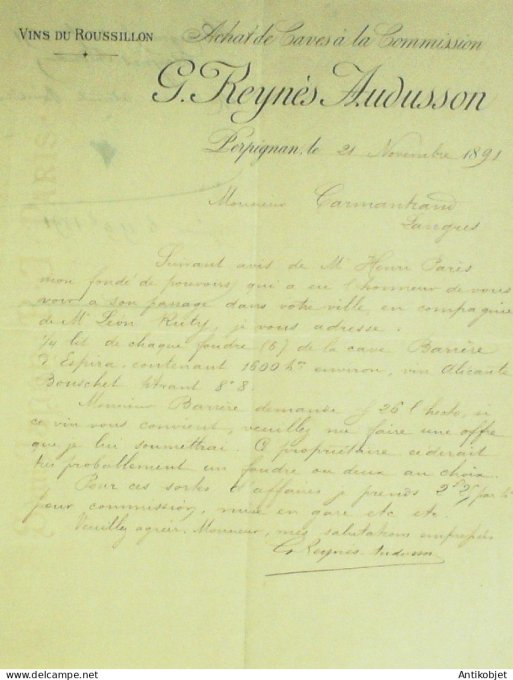 VINS DU ROUSSILLON
Achat de Caves à la Commission
G. Reynès Audusson
Perpignan, le 21 Novembre 1891
Monsieur Carmantrand
Langres
Suivant avis de Mr Henri Paris
mon fondé de pouvoirs, qui a eu l'honneur de vous
voir à son passage dans votre ville, en compagnie
de Mr Léon Ruty, je vous adresse :
1/4 lit de chaque foudre (6) de la cave Barrère
d'Espira, contenant 1600 hos environ, vin Alicante
Bouschet titrant 8°8.
Monsieur Barrère demande f 26 l'hecto, si
ce vin vous convient, veuillez me faire une offre
que je lui soumettrai. Ce propriétaire cèderait
très probablement un foudre ou deux au choix.
Pour ces sortes d'affaires je prends par ho
pour commission, mise en gare etc etc.
Veuillez agréer, Monsieur, mes salutations empressées
G. Reynès Audusson
Antikobjet